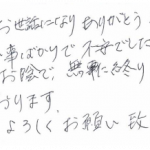 お世話になり ありがとう
事ばかりで 不安でした
お陰で、無事に終り
さります。
よろしく お願い 致